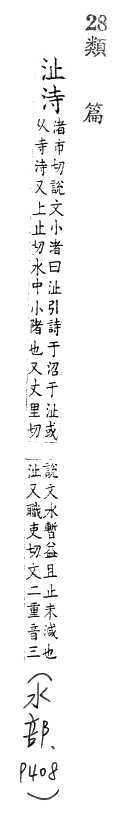 28類篇
沚洔
渚市切說文小渚曰沚引詩于沼于沚或
从寺洔又上止切水中小陼也又丈里切
說文水暫益且止未減也
沚又職吏切文二重音三
（水部、P408）